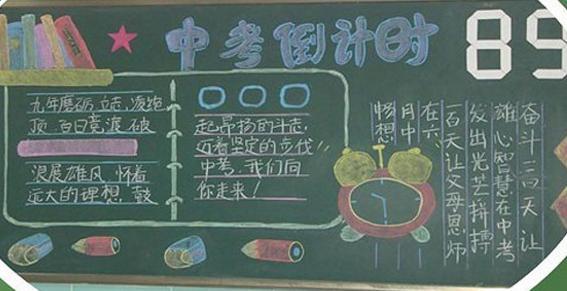 中考倒计时 89
九年磨砺,立志,凌绝
顶.百日竞渡.破
浪展雄风.怀着
远大的理想.鼓
起昂扬的斗志,
迈着坚定的步伐
中考,我们向
你走来!
奋斗一百天让
雄心智慧在中考
发出光芒拼搏
一百天让父母恩师
在六
月中
畅想